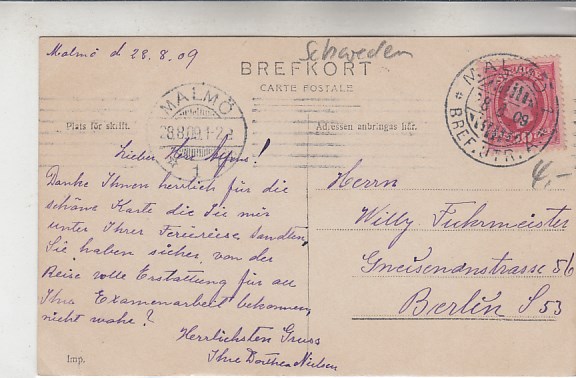 Malmö d 28.8.09
Schweden
BREFKORT
CARTE POSTALE
MALMÖ
28.8.09.1-2
1
MALMÖ
28 8 09
BREF.
Plats för skrift.
Adressen anbringas här.
4,-
Lieber Herr
Danke Ihnen herlich für die
schöne Karte die Sie mir
unter Ihrer Ferienreise sandten,
Sie haben sicher von der
Reise volle Erstattung für all
Ihre Examenarbeit bekommen,
nicht wahr?
Herrlichsten Gruss
Ihre Dorthea Nielsen
Herrn
Willy Fuhrmeister
Gneisenaustrasse 56
Berlin S 53
Imp.